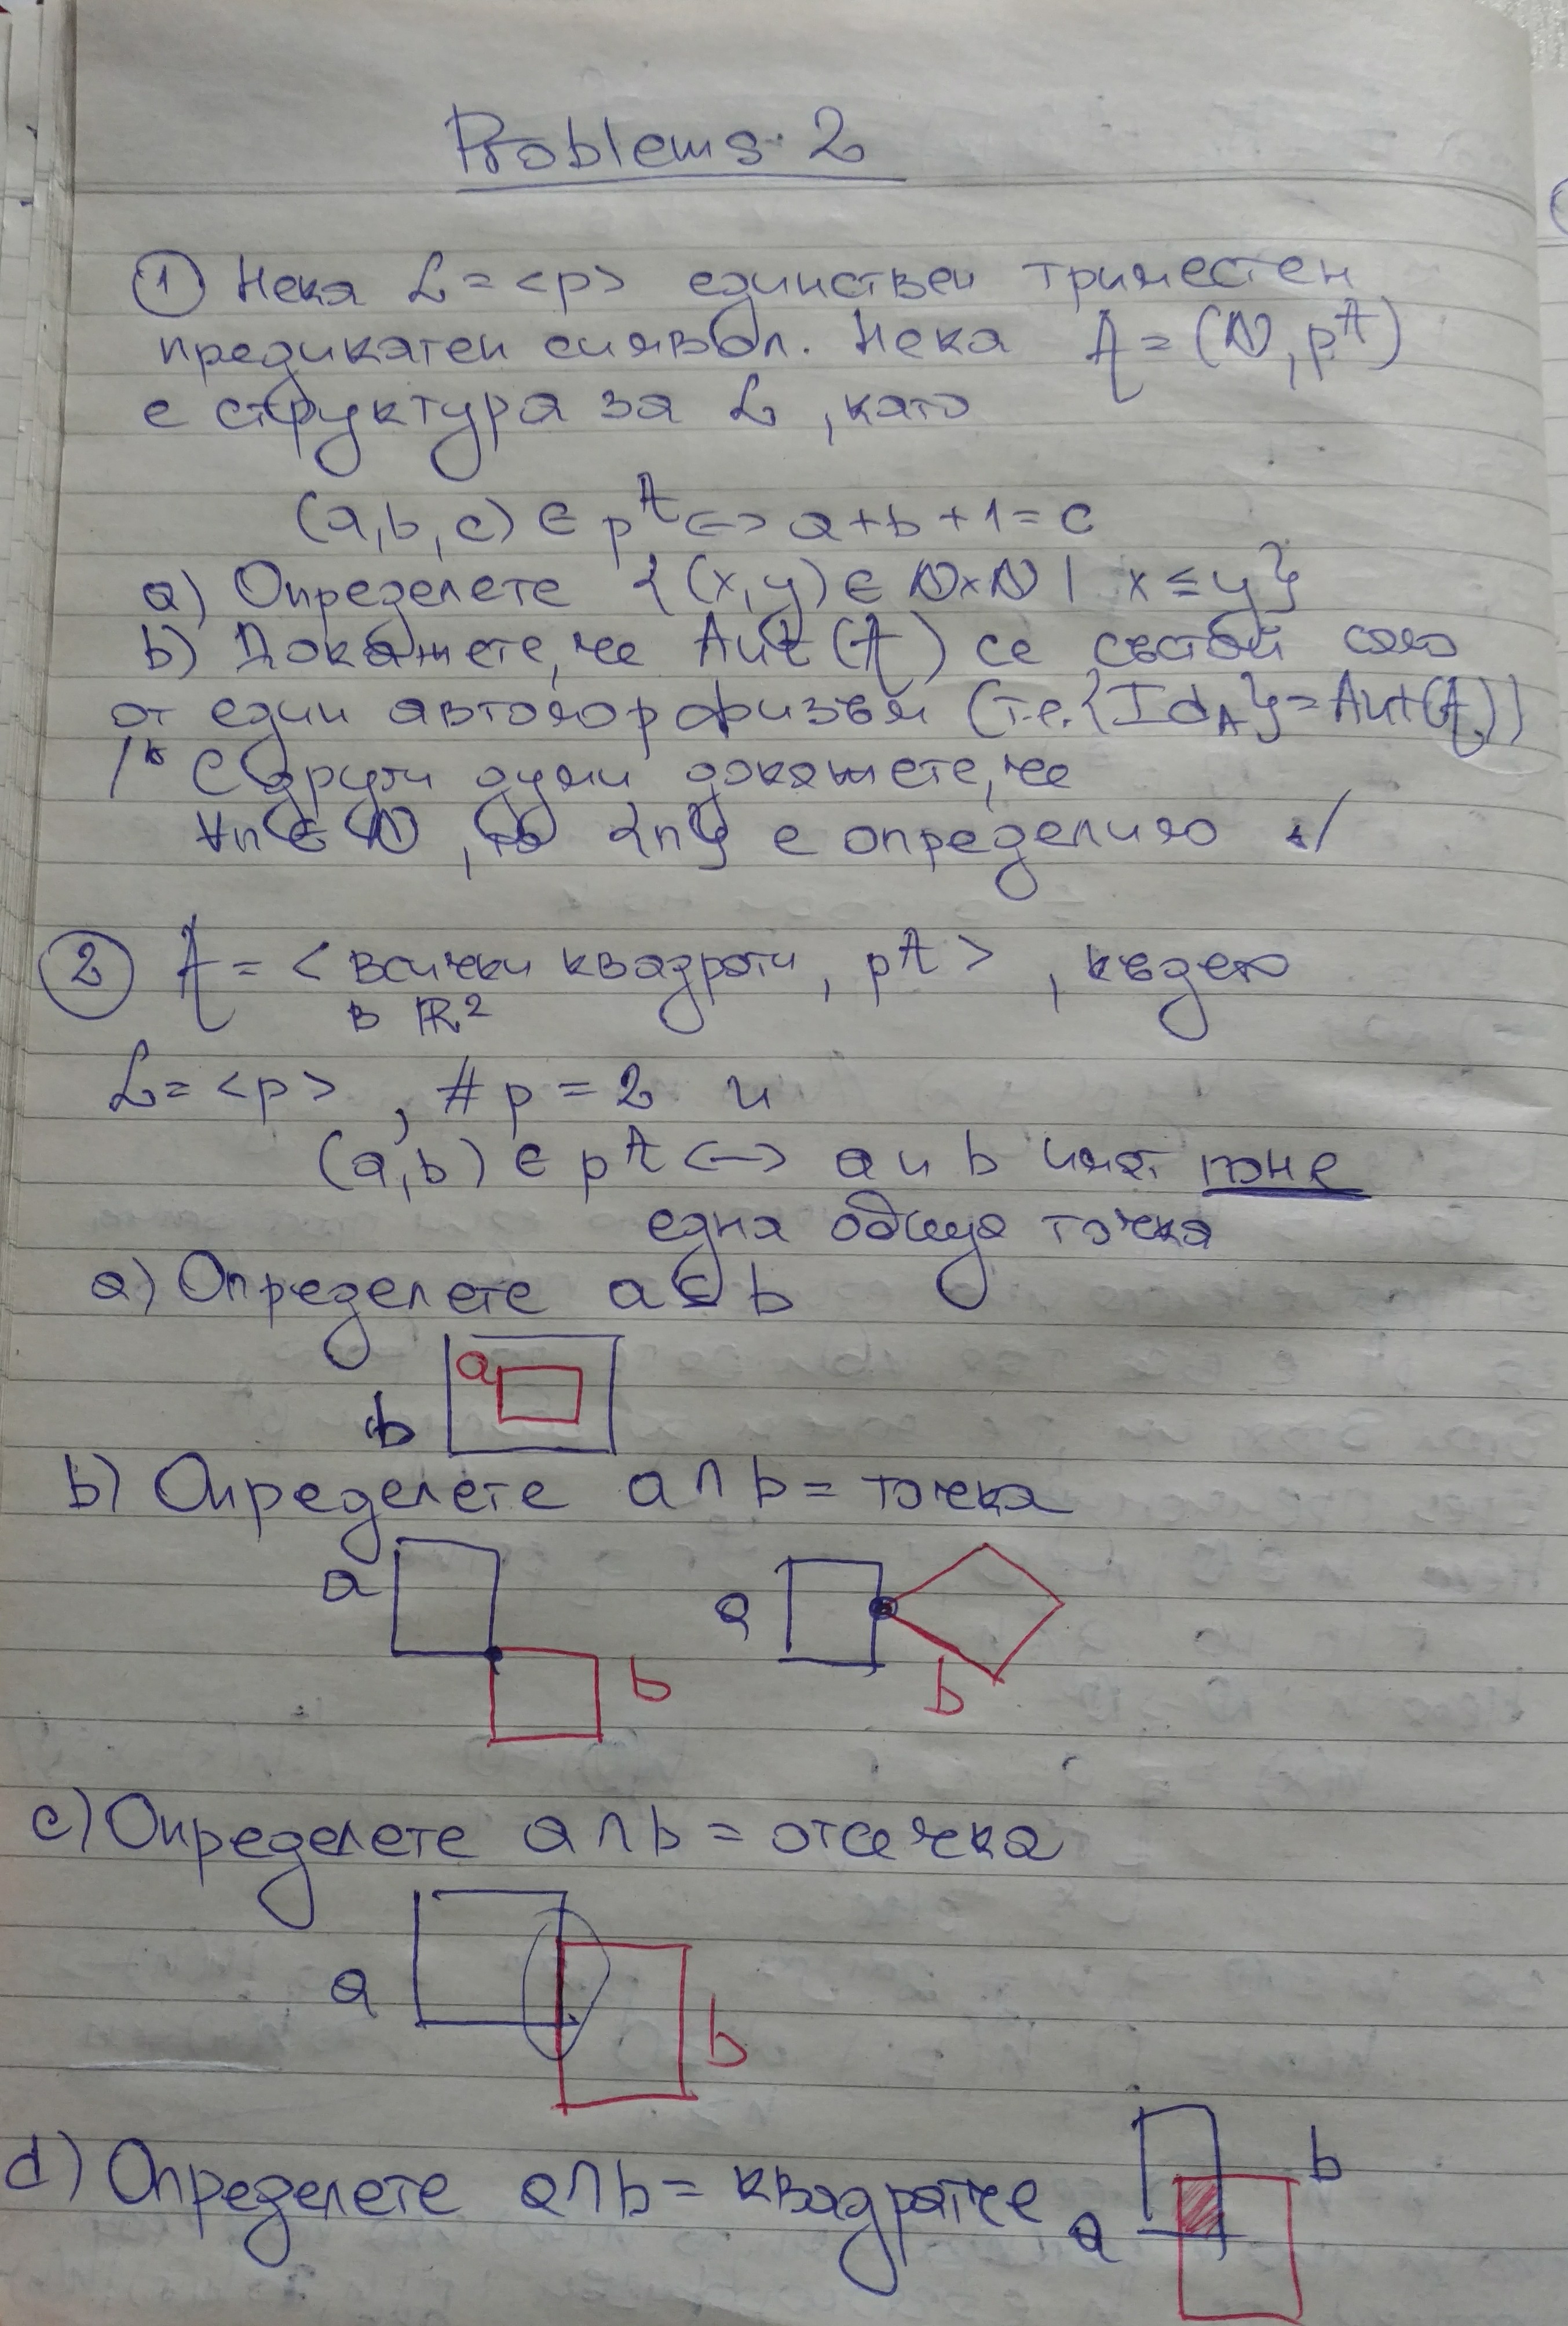 Problems 2
① Нека L = <p> единствен триместен
предикатен символ. Нека A = (ℕ, p^A)
е структура за L, като
(a,b,c) ∈ p^A <-> a+b+1=c
a) Определете {(x,y) ∈ ℕ×ℕ | x ≤ y}
b) Докажете, че Aut(A) се състои само
от един автоморфизъм (т.е. {Id_A} = Aut(A))
/* С други думи докажете, че
∀n ∈ ℕ, то {n} е определимо */
② A = < всички квадрати, p^A >, където
в ℝ²
L = <p>, #p = 2 и
(a,b) ∈ p^A <-> a и b имат поне
една обща точка
a) Определете a ⊆ b
a
b
b) Определете a ∩ b = точка
a
a
b
b
c) Определете a ∩ b = отсечка
a
b
d) Определете a ∩ b = квадратче
b
a